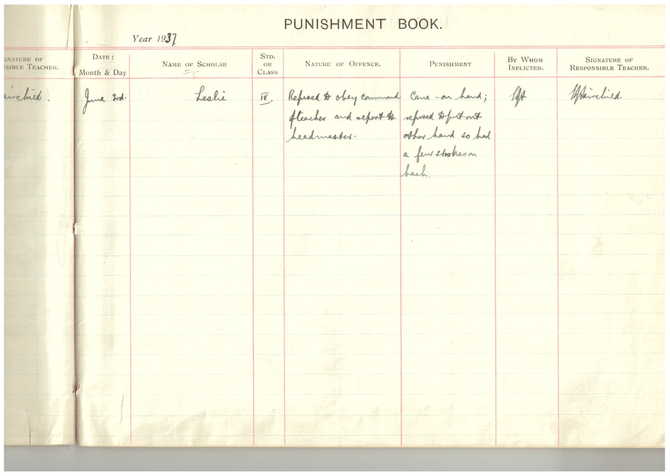 PUNISHMENT BOOK.
Year 1937
SIGNATURE OF
RESPONSIBLE TEACHER.
DATE:
Month & Day
NAME OF SCHOLAR
STD.
OR
CLASS
NATURE OF OFFENCE.
PUNISHMENT
BY WHOM
INFLICTED.
SIGNATURE OF
RESPONSIBLE TEACHER.
June 3rd.
Leslie
IV.
Refused to obey command
of teacher and report to
headmaster.
Cane on hand;
refused to put out
other hand so had
a few strokes on
back.
Fairchild.